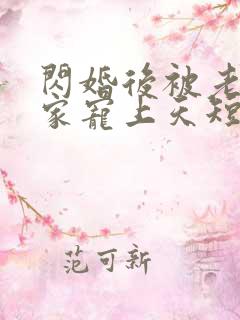 閃婚後被老
家寵上天短
范可新